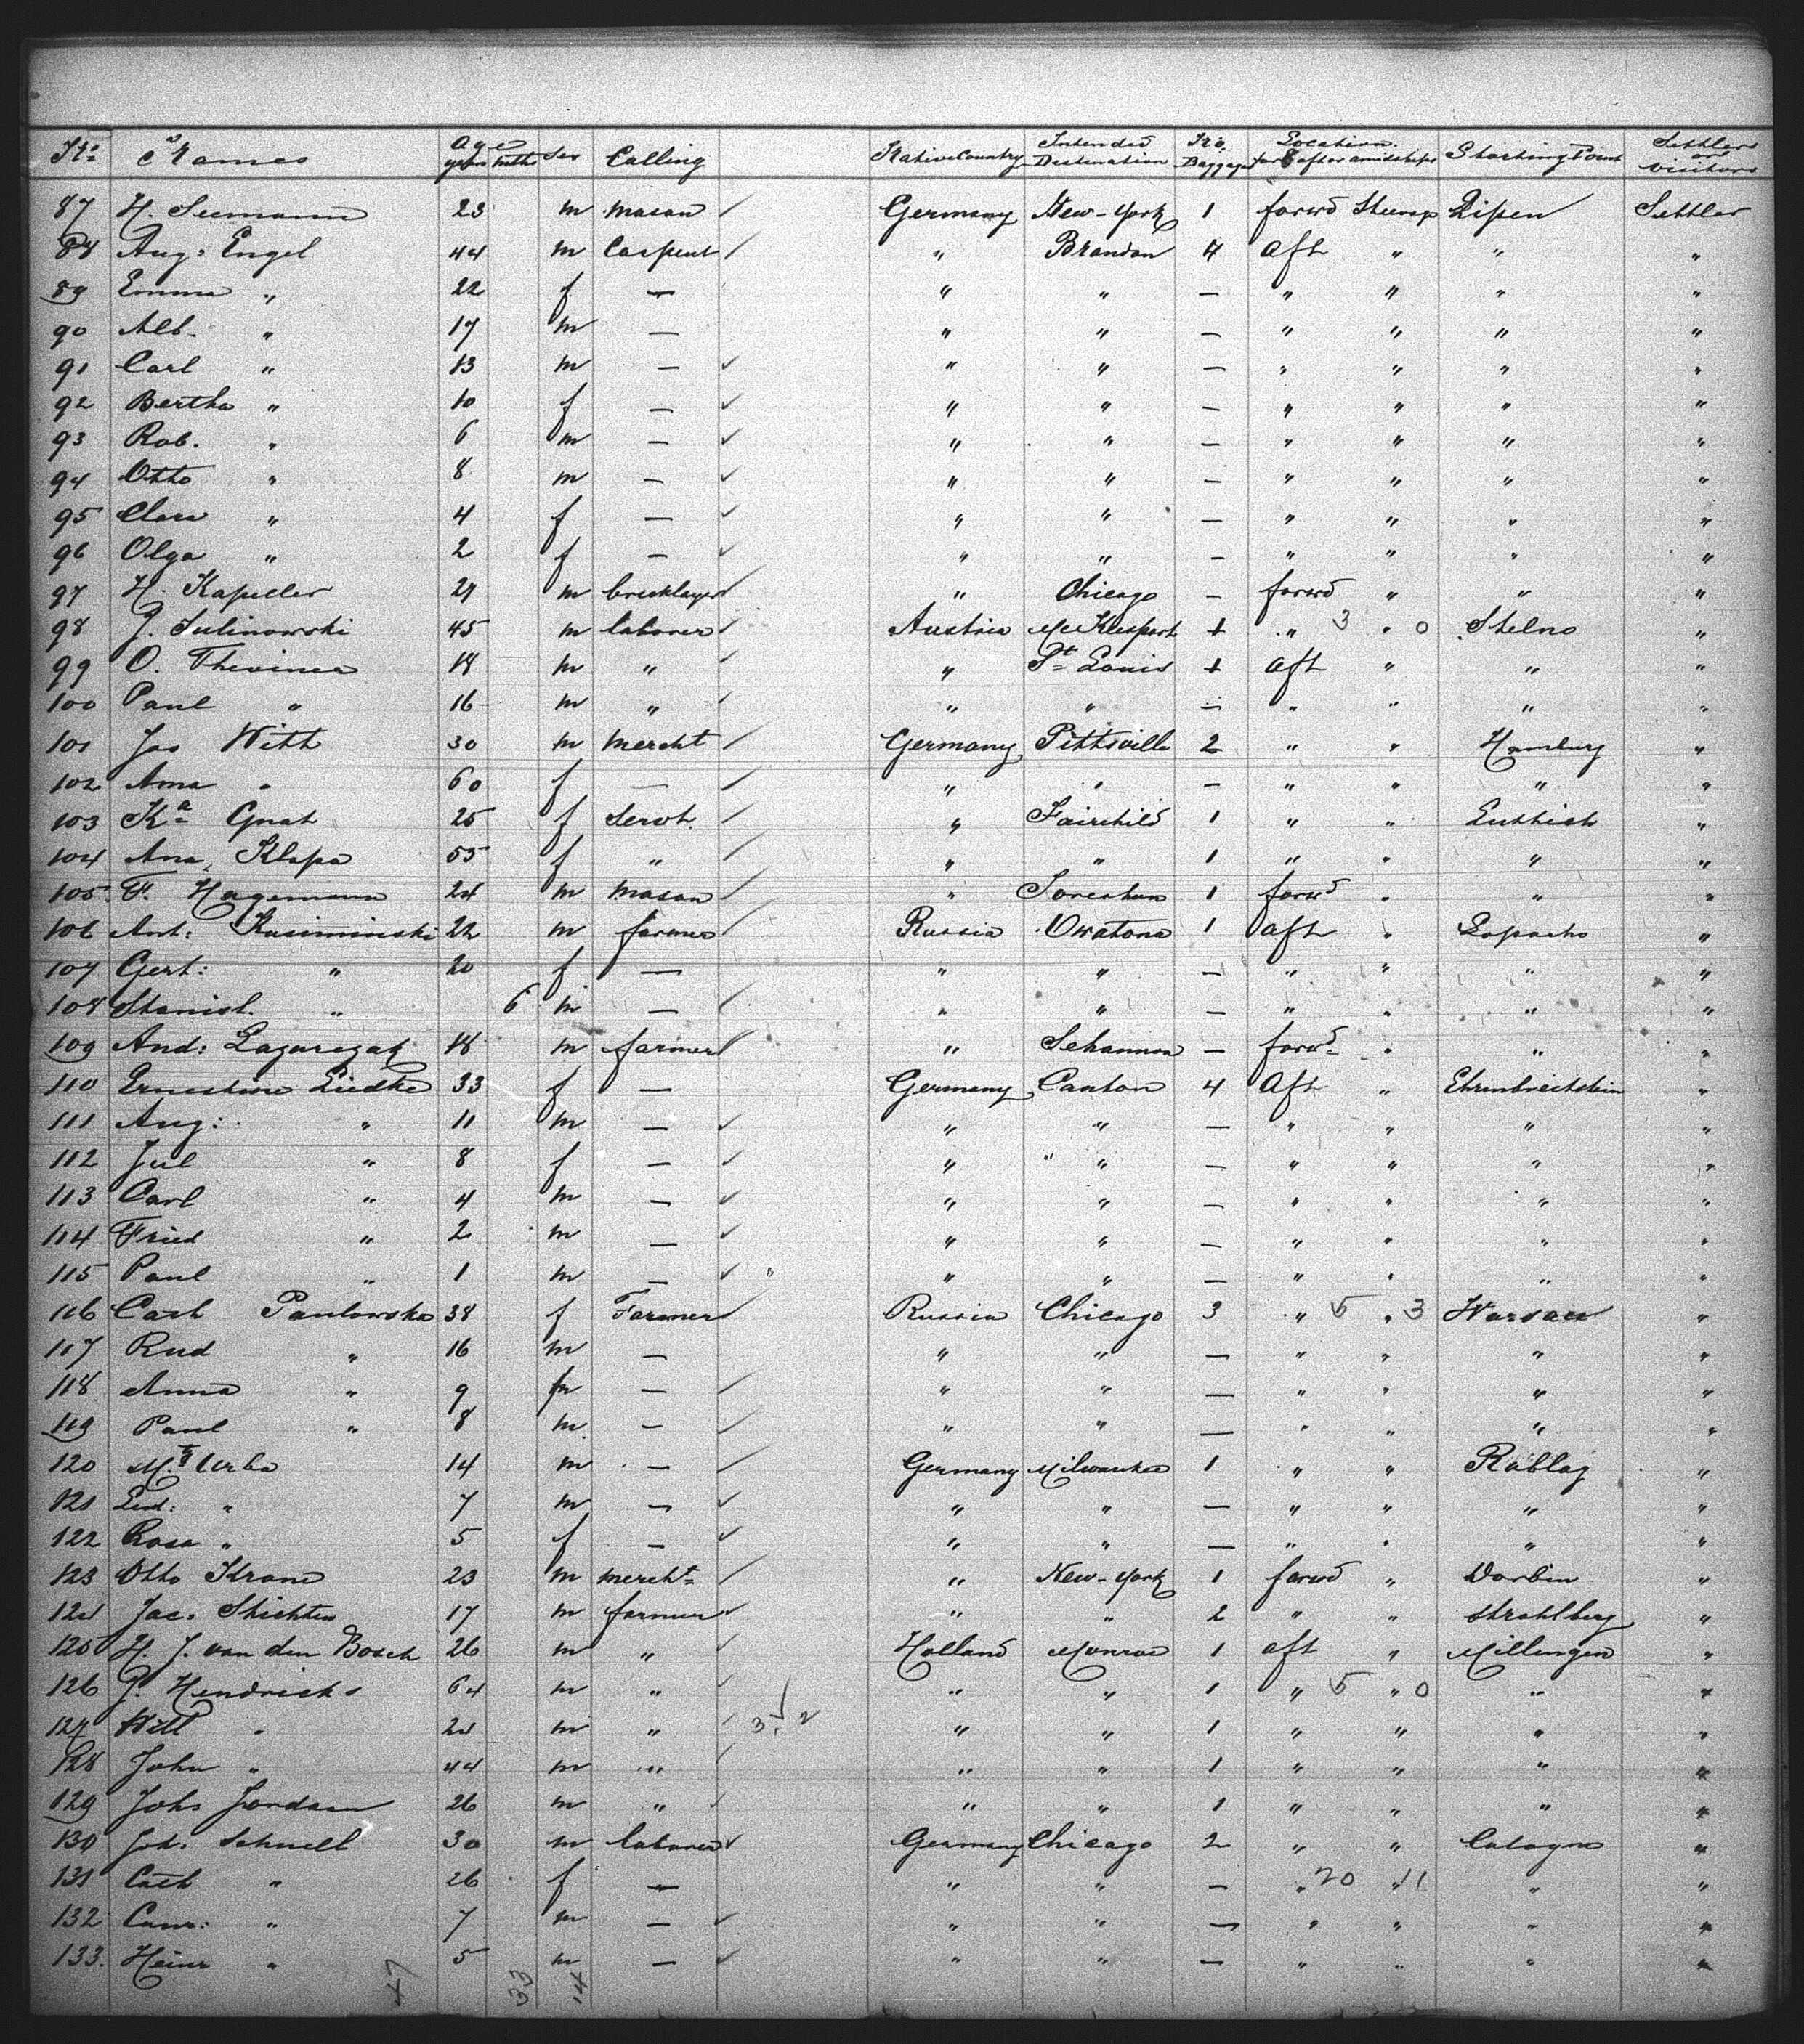 No. Names Age years mnths Sex Calling Native Country Intended Destination No. Baggage Location. forwd after amidships Starting Point Settlers or Visitors
87 H. Seemann 23 m mason / Germany New-York 1 forwd Steerage Lipen Settler
88 Aug: Engel 44 m Carpent / " Brandon 4 aft " " "
89 Emma " 22 f — " " — " " " "
90 Alb. " 17 m — " " — " " " "
91 Carl " 13 m — ✓ " " — " " " "
92 Bertha " 10 f — ✓ " " — " " " "
93 Rob. " 6 m — ✓ " " — " " " "
94 Otto " 8 m — ✓ " " — " " " "
95 Clara " 4 f — ✓ " " — " " " "
96 Olga " 2 f — ✓ " " — " " " "
97 H. Kapeller 29 m bricklayer / " Chicago — forwd " " "
98 J. Sulinowski 45 m laborer / Austria McKeesport + " 3 " 0 Stelno "
99 O. Thevinea 18 m " / " St Louis + aft " " "
100 Paul " 16 m " / " " — " " " "
101 Jas Witt 30 m mercht / Germany Pittsville 2 " " Hamburg "
102 Anna " 60 f — / " " — " " " "
103 Ka Gnat 25 f Servt. / " Fairchild 1 " " Luttich "
104 Ana, Klapa 55 f " / " " 1 " " " "
105. F. Hagemann 24 m mason / " 1 forwd " " "
106 Ant: Kusiminski 22 m farmer / Russia Owatona 1 aft " "
107 Gert: " 20 f — " " — " " " "
108 Stanisl. " 6 m — / " " — " " " "
109 And: Lazarezak 18 m farmer / " — forwd " " "
110 Ernestine Liedke 33 f — Germany Canton 4 Aft " Ehrenbreitstein "
111 Aug: " 11 m — ✓ " " — " " " "
112 Jul " 8 f — ✓ " " — " " " "
113 Carl " 4 m — ✓ " " — " " " "
114 Fried " 2 m — ✓ " " — " " " "
115 Paul " 1 m — ✓ " " — " " " "
116 Cath Pawlowska 38 f Farmer / Russia Chicago 3 " 5 " 3 Warsau "
117 Rud " 16 m — " " — " " " "
118 Anna " 9 f — / " " — " " " "
119 Paul " 8 m. — / " " — " " " "
120 Urba 14 m — / Germany Milwaukee 1 " " Rablag "
121 Lud: " 7 m — ✓ " " — " " " "
122 Rosa " 5 f — ✓ " " — " " " "
123 Otto Krane 23 m mercht / " New-York 1 forwd " Dorbin "
124 Jac. Stichter 17 m farmer ✓ " " 2 " " Strahlberg "
125 H. J. van den Bosch 26 m " / Holland Monroe 1 aft " Millingen "
126 J. Hendricks 64 m " / " " 1 " 5 " 0 " "
127 Will " 24 m " / 3 ✓ 2 " " 1 " " " "
128 John " 44 m " / " " 1 " " " "
129 Johs Jordaan 26 m " / " " 1 " " " "
130 Joh. Schnell 30 m laborer ✓ Germany Chicago 2 " " Cologne "
131 Cath " 26 f — " " — " 20 " 11 " "
132 " 7 m — ✓ " " — " " " "
133. Heinr " 5 m — ✓ " " — " " " "
47 33 14